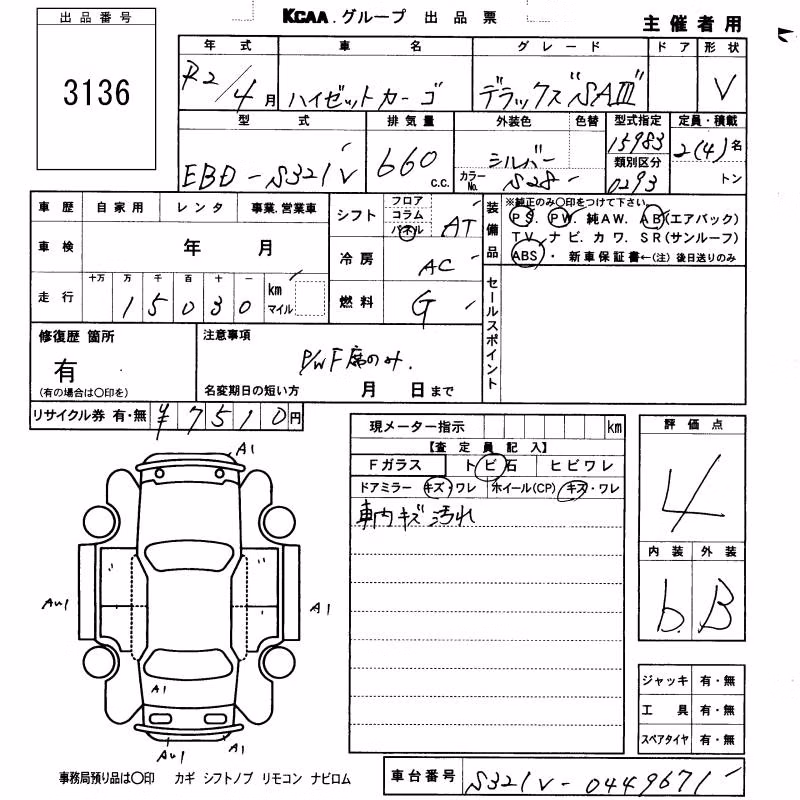 KCAA.グループ 出品票
主催者用
出品番号
3136
年式 車名 グレード ドア 形状
R2/4月 ハイゼットカーゴ デラックス"SAⅢ" V
型式 排気量 外装色 色替 型式指定 定員・積載
EBD-S321V 660 c.c. シルバー 15983 2(4)名
カラーNo. S28 類別区分 0293 トン
車歴 自家用 レンタ 事業.営業車
シフト フロア コラム パネル AT
装備品 ※純正のみ〇印をつけて下さい。
PS. PW. 純AW. AB(エアバック)
TV. ナビ. カワ. SR(サンルーフ)
ABS・ 新車保証書←(注)後日送りのみ
車検 年 月
冷房 AC
走行 十万 万 千 百 十 一 km マイル
15030
燃料 G
セールスポイント
修復歴 箇所
有
(有の場合は〇印を)
注意事項
P/W F席のみ.
名変期日の短い方 月 日まで
リサイクル券 有・無 ¥7510円
現メーター指示 km
【査定員記入】
Fガラス トビ石 ヒビワレ
ドアミラー キズ・ワレ ホイール(CP) キズ・ワレ
車内キズ汚れ
評価点
4
内装 外装
b. B
A1
AU1
A1
A1
AU1
A1
ジャッキ 有・無
工具 有・無
スペアタイヤ 有・無
事務局預り品は〇印 カギ シフトノブ リモコン ナビロム
車台番号 S321V-0449671